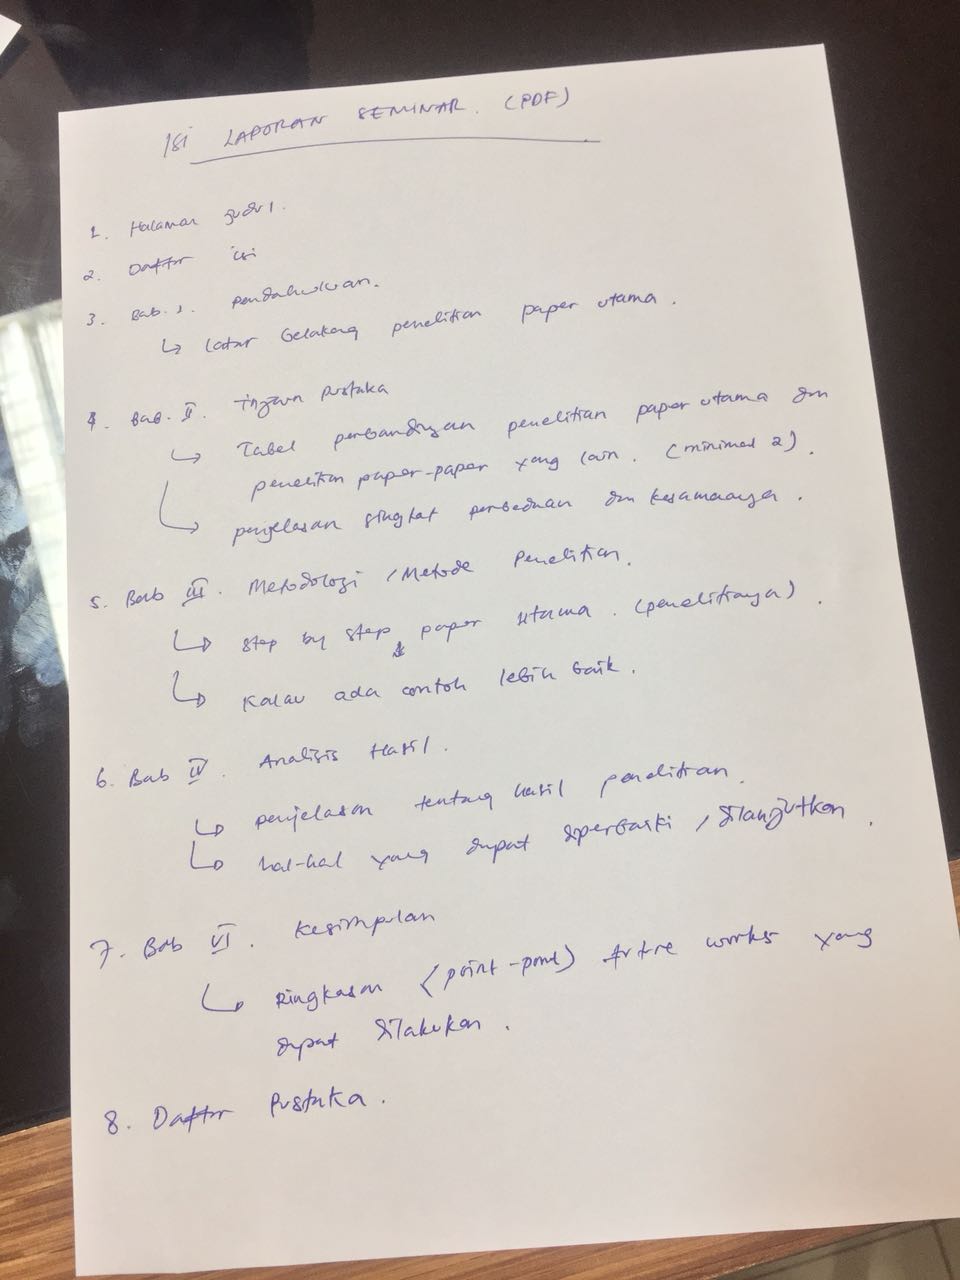 Isi LAPORAN SEMINAR. (PDF)
1. Halaman judul.
2. Daftar isi
3. Bab. I. pendahuluan.
↳ latar belakang penelitian paper utama.
4. Bab. II. Tinjauan pustaka
↳ Tabel perbandingan penelitian paper utama dan
penelitian paper-paper yang lain. (minimal 2).
↳ penjelasan singkat perbedaan dan kesamaanya.
5. Bab III. Metodologi / Metode Penelitian.
↳ step by step paper utama. (penelitianya).
↳ Kalau ada contoh lebih baik.
6. Bab IV. Analisis Hasil.
↳ penjelasan tentang hasil penelitian.
↳ hal-hal yang dapat diperbaiki / dilanjutkan.
7. Bab VI. Kesimpulan
↳ Ringkasan (point-point) future works yang
dapat dilakukan.
8. Daftar Pustaka.